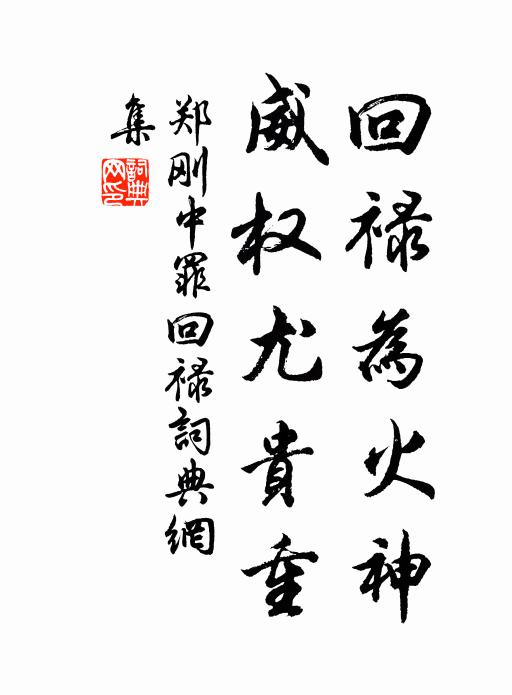 回禄為火神
威权尤貴重
郑刚中罪回禄詞典網
集
詞典
网印